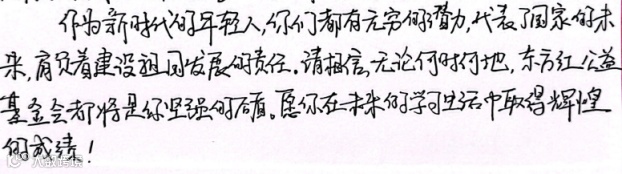 作为新时代的年轻人,你们都有无穷的潜力,代表了国家的未
来,肩负着建设祖国发展的责任。请相信,无论何时何地,东方红公益
基金会都将是你坚强的后盾。愿你在未来的学习生活中取得辉煌
的成绩!